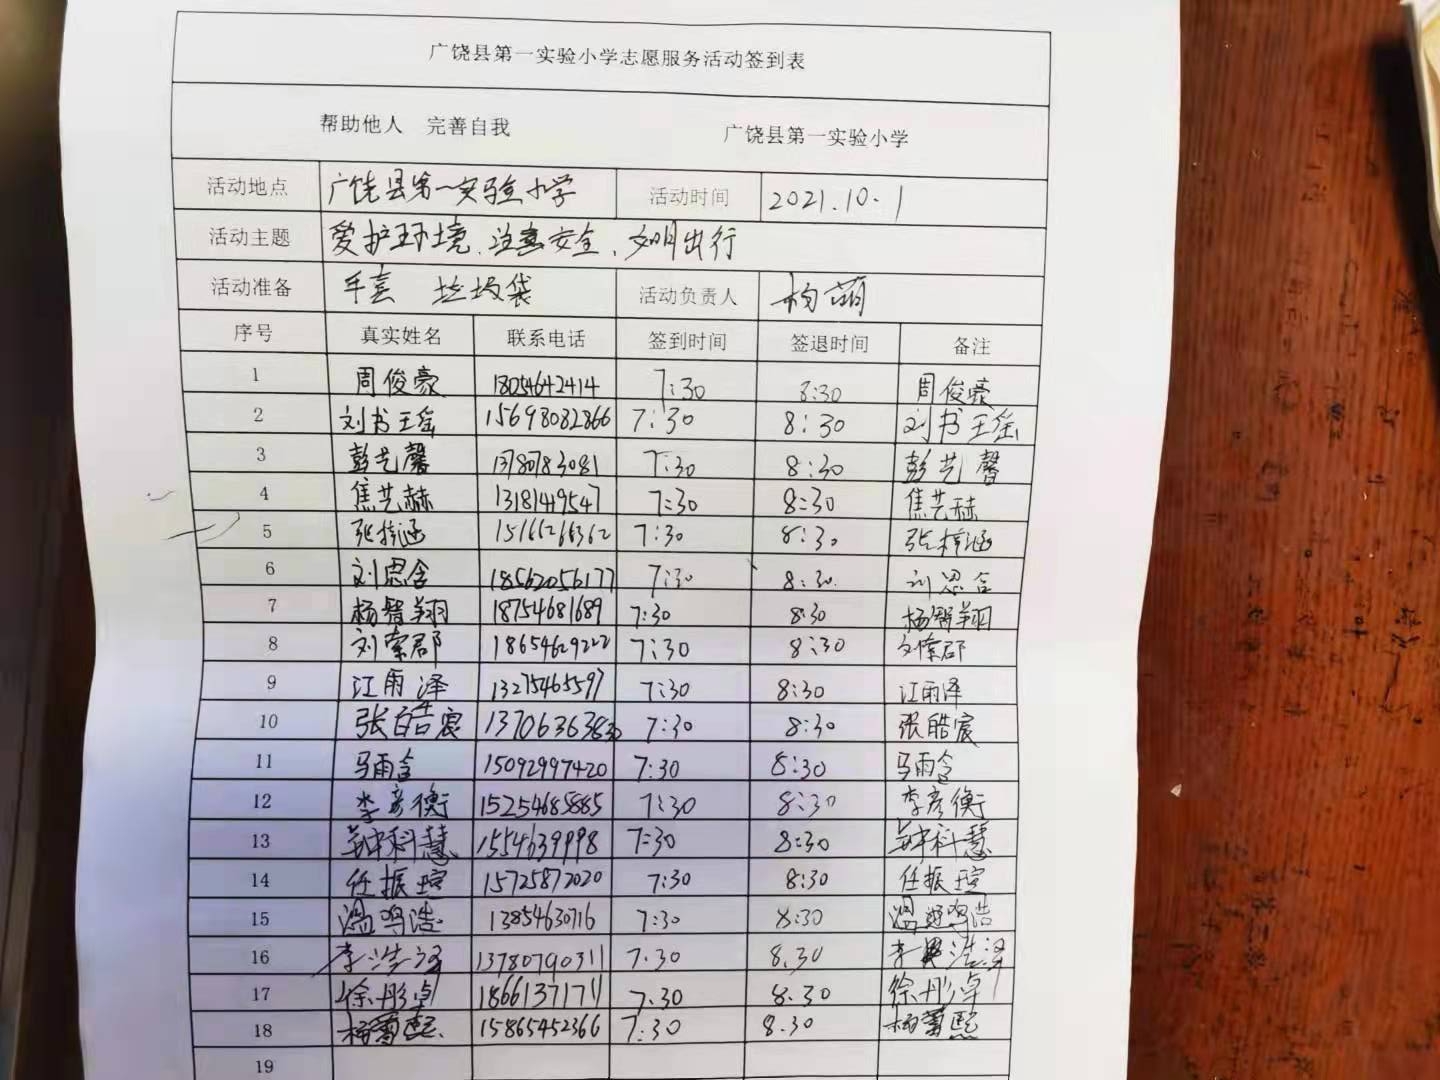 广饶县第一实验小学志愿服务活动签到表
帮助他人 完善自我 广饶县第一实验小学
活动地点 广饶县第一实验小学 活动时间 2021.10.1
活动主题 爱护环境、注意安全、文明出行
活动准备 手套 垃圾袋 活动负责人 杨萌
序号 真实姓名 联系电话 签到时间 签退时间 备注
1 周俊豪 18054642414 7:30 8:30 周俊豪
2 刘书瑶 15698082866 7:30 8:30 刘书瑶
3 彭艺馨 13780783081 7:30 8:30 彭艺馨
4 焦艺赫 13181419547 7:30 8:30 焦艺赫
5 张梓涵 15166266362 7:30 8:30 张梓涵
6 刘恩含 18562056177 7:30 8:30 刘恩含
7 杨智翔 18754681689 7:30 8:30 杨智翔
8 刘 郡 18654629222 7:30 8:30 刘 郡
9 江雨泽 13275465597 7:30 8:30 江雨泽
10 张皓宸 13706363830 7:30 8:30 张皓宸
11 马雨含 15092997420 7:30 8:30 马雨含
12 李彦衡 15254685885 7:30 8:30 李彦衡
13 科慧 1554639998 7:30 8:30 科慧
14 任振瑄 15725872020 7:30 8:30 任振瑄
15 温鸣浩 13854630716 7:30 8:30 温鸣浩
16 李浩 13780790311 7:30 8:30 李 浩
17 徐彤卓 18661371711 7:30 8:30 徐彤卓
18 杨 熙 15865452366 7:30 8:30 杨 熙
19